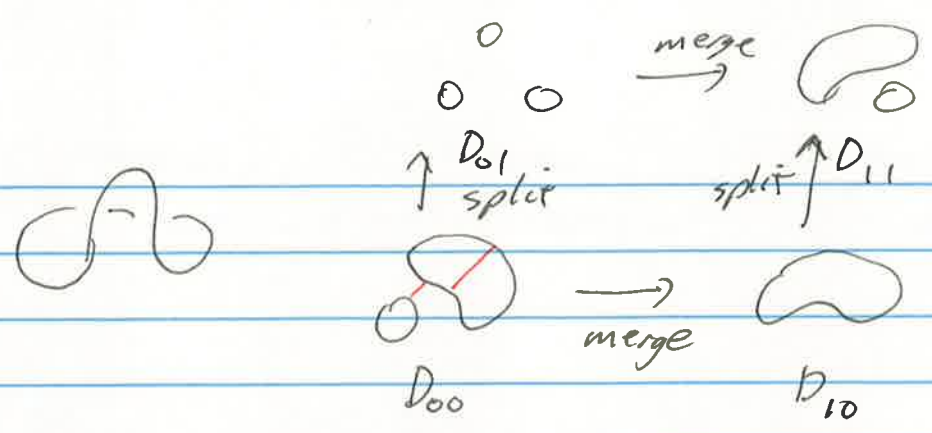 merge
D01
D11
split
split
merge
D00
D10